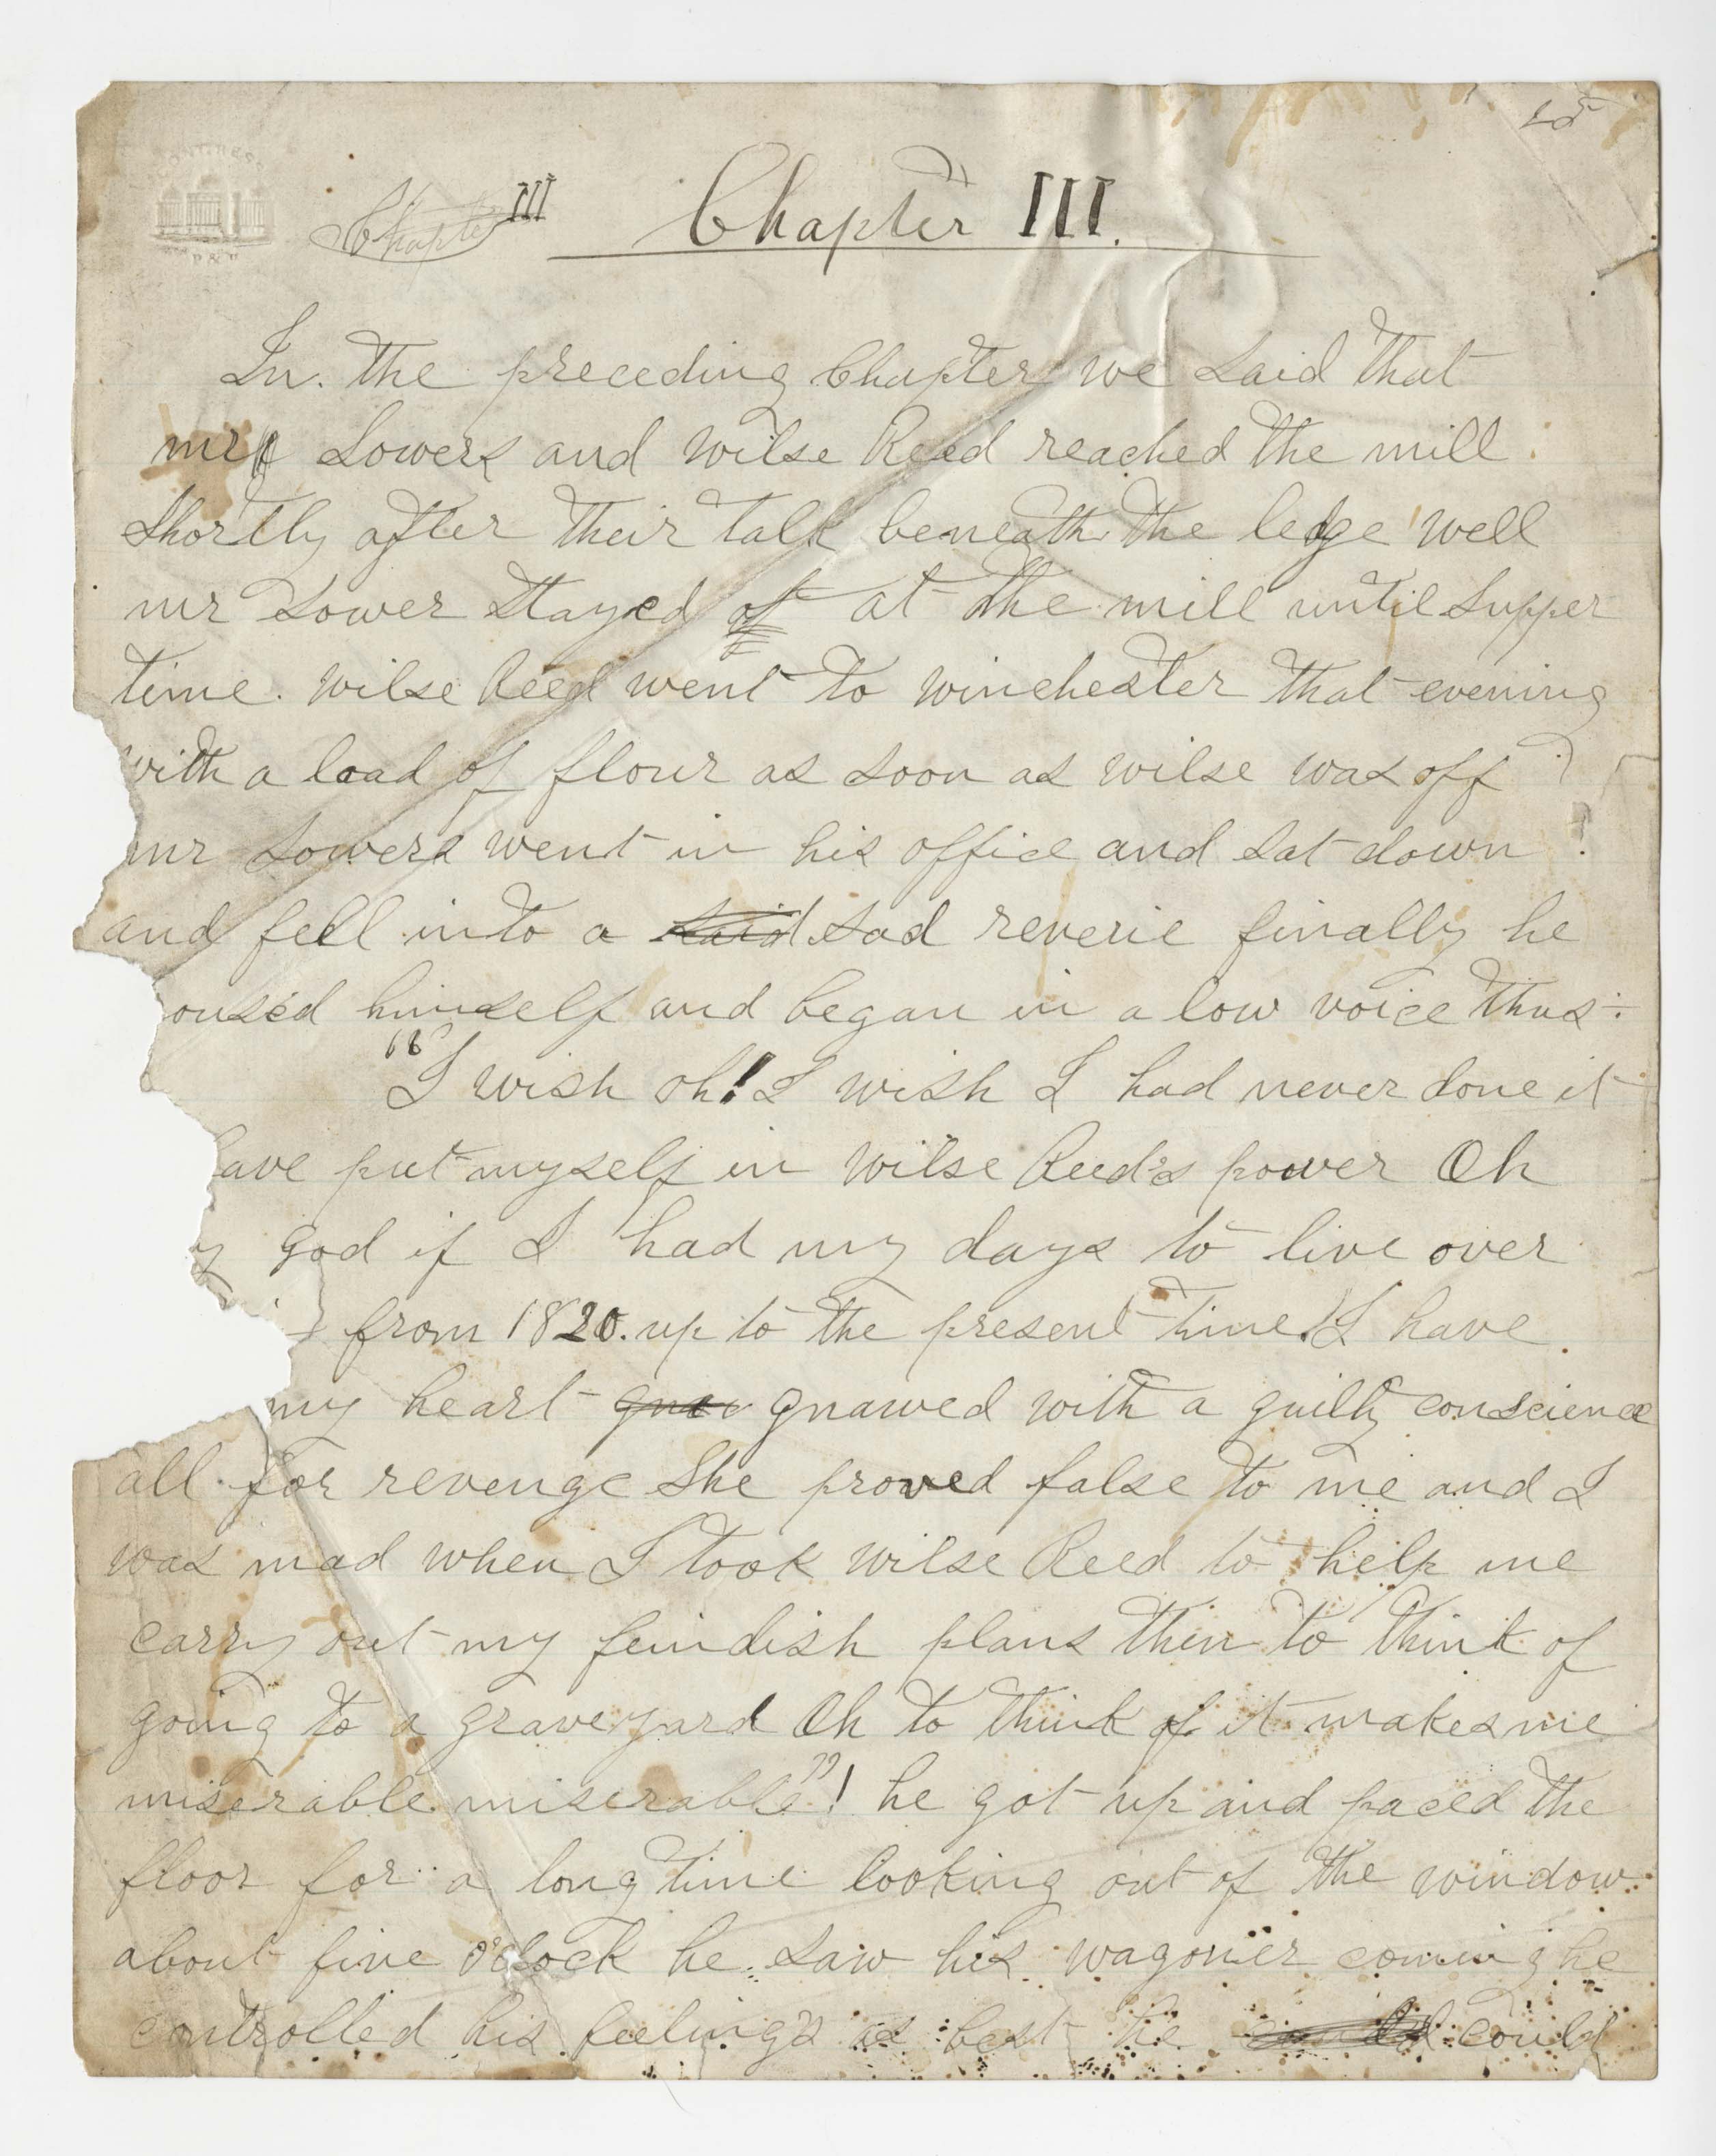 25
CONGRESS
P & P
Chapter III
Chapter III.
In. the preceding Chapter we said that
mr Sowers and wilse Reed reached the mill
shortly after their talk beneath the ledge well
mr Sower stayed at the mill until supper
time. wilse Reed went to winchester that evening
with a load of flour as soon as wilse was off
mr Sowers went in his office and sat down
and fell into a said sad reverie finally he
oused himself and began in a low voice thus:
"I wish oh! I wish I had never done it
ave put myself in wilse Reed's power Oh
y god if I had my days to live over
from 1820. up to the present time! I have
my heart gnaw gnawed with a guilty conscience
all for revenge She proved false to me and I
was mad when I took wilse Reed to help me
carry out my feindish plans then to think of
going to a graveyard Oh to think of it makes me
miserable miserable"! he got up and paced the
floor for a long time looking out of the window
about five o'clock he saw his wagoner coming he
controlled his feeling's as best he could